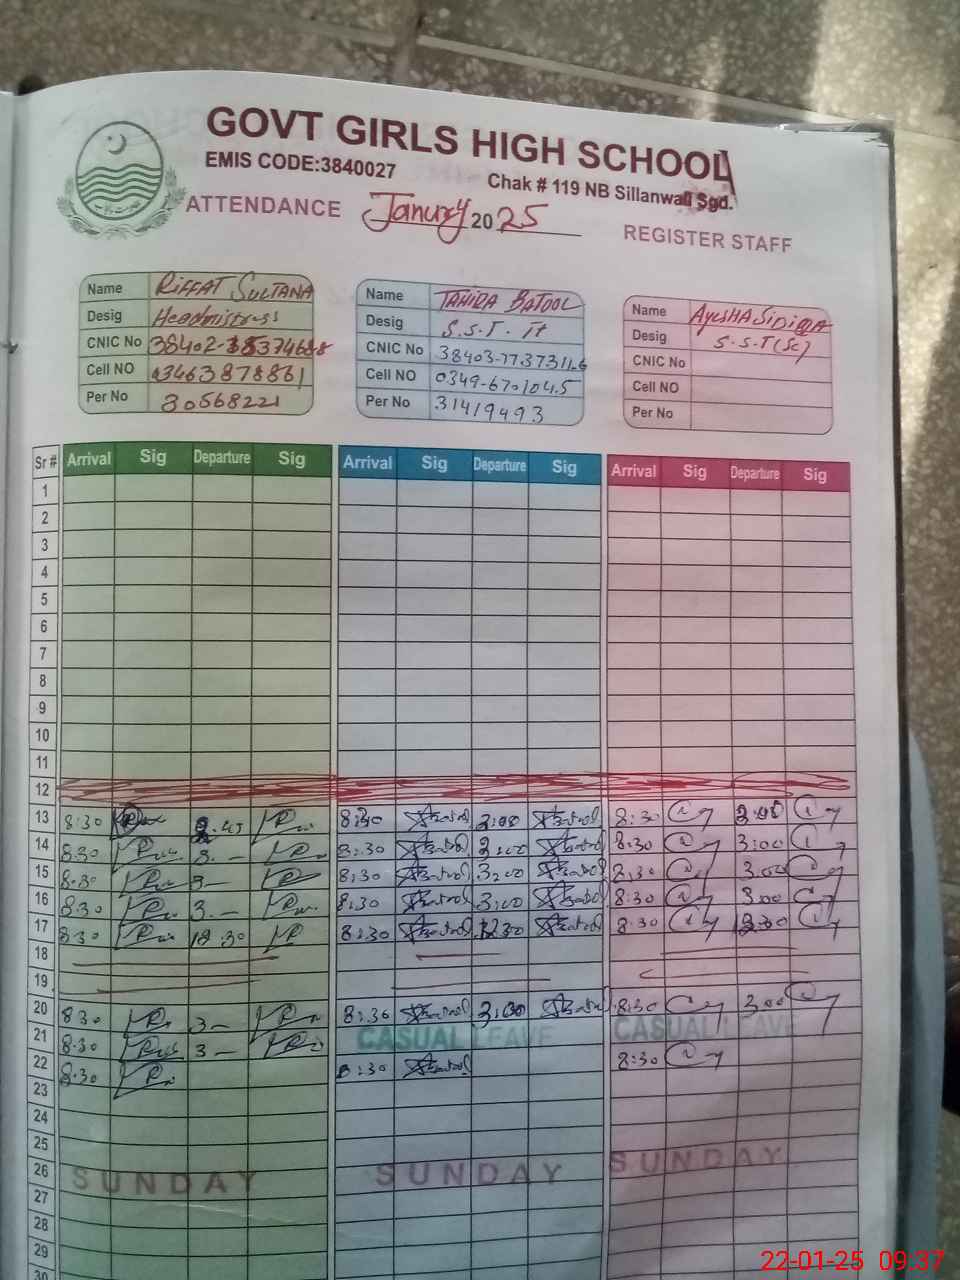 GOVT GIRLS HIGH SCHOOL
EMIS CODE:3840027
Chak # 119 NB Sillanwali Sgd.
ATTENDANCE Janury 2025
REGISTER STAFF
Name RIFFAT SULTANA
Desig Headmistress
CNIC No
Cell NO 03463878861
Per No 30568221
Name TAHIRA BATOOL
Desig S.S.T.
CNIC No
Cell NO 0349-6701045
Per No 31419493
Name AYESHA SIDIQA
Desig S.S.T(Sc)
CNIC No
Cell NO
Per No
Sr # Arrival Sig Departure Sig Arrival Sig Departure Sig Arrival Sig Departure Sig
1
2
3
4
5
6
7
8
9
10
11
12
13 8:30 2.45 8:30 3:00 8:30 3:00
14 8:30 3.— 8:30 3:00 8:30 3:00
15 8:30 3— 8:30 3:00 8:30 3.00
16 8:30 3.— 8:30 3:00 8:30 3:00
17 8:30 12.30 8:30 12:30 8:30 12:30
18
19
20 8:30 3— 8:30 3:00 8:30 3:00
21 8:30 3— CASUAL LEAVE CASUAL LEAVE
22 8:30 8:30 8:30
23
24
25
26 SUNDAY SUNDAY SUNDAY
27
28
29
30
22-01-25 09:37